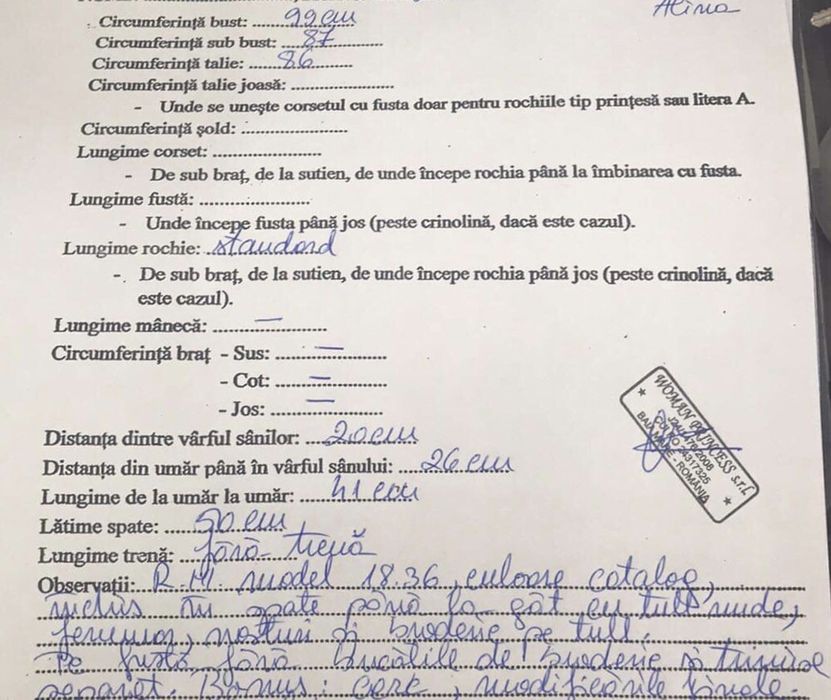 Alina
Circumferință bust: ........99 cm
Circumferință sub bust: ....87..............
Circumferință talie: ......86..........
Circumferință talie joasă: ........................
- Unde se unește corsetul cu fusta doar pentru rochiile tip prințesă sau litera A.
Circumferință șold: ........................
Lungime corset: ........................
- De sub braț, de la sutien, de unde începe rochia până la îmbinarea cu fusta.
Lungime fustă: ........................
- Unde începe fusta până jos (peste crinolină, dacă este cazul).
Lungime rochie: standard
- De sub braț, de la sutien, de unde începe rochia până jos (peste crinolină, dacă
este cazul).
Lungime mânecă: ........—........
Circumferință braț - Sus: ........—........
- Cot: ........—........
- Jos: ........—........
Distanța dintre vârful sânilor: ....20 cm
Distanța din umăr până în vârful sânului: ....26 cm
Lungime de la umăr la umăr: ....41 cm
Lățime spate: ......50 cm
Lungime trenă: fără trenă
Observații: R.M. model 18.36, culoare catalog,
închis în spate până la gât cu tull nude,
fermuar, nasturi și broderie pe tull.
Pe fustă fără bucățile de broderie și trimise
separat. Bonus: cerc, modificările finale
WOMAN PRINCESS s.r.l.
BAIA MARE - ROMÂNIA